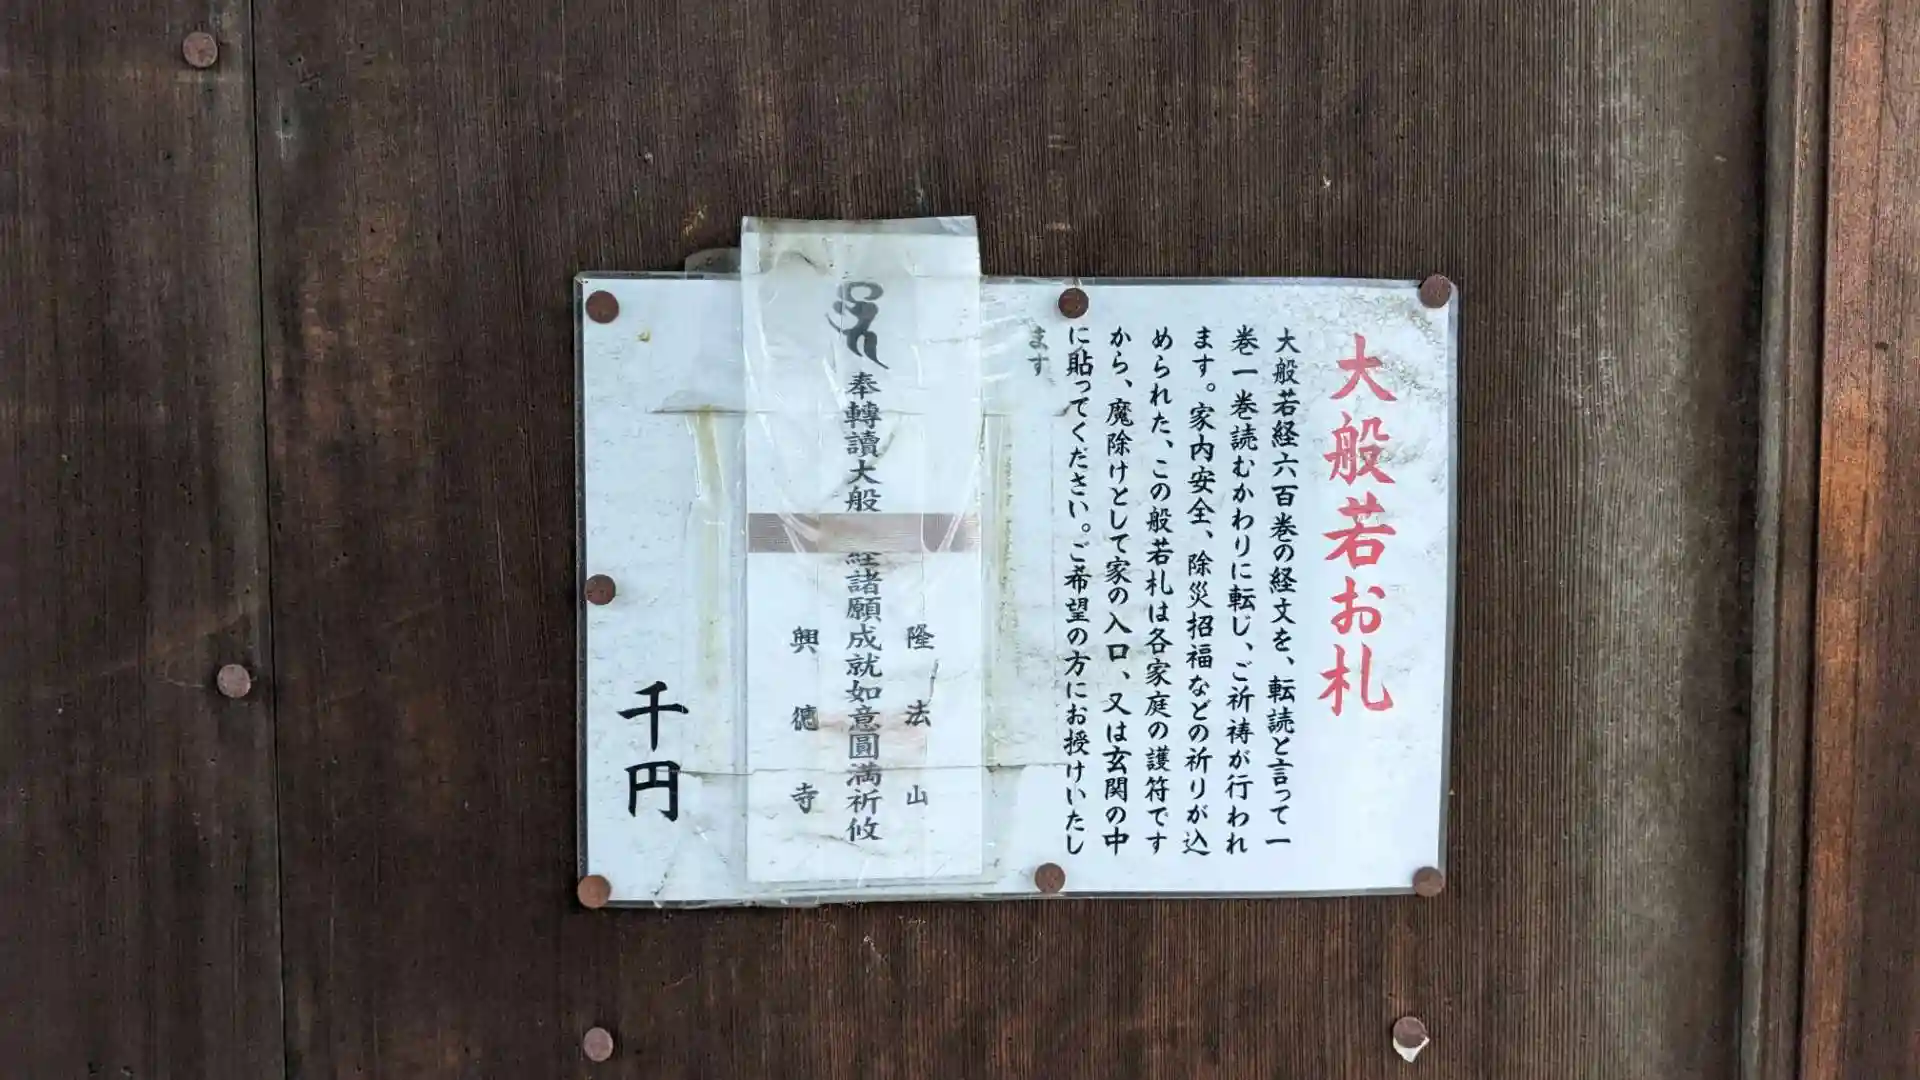 大般若お札
大般若経六百巻の経文を、転読と言って一
巻一巻読むかわりに転じ、ご祈祷が行われ
ます。家内安全、除災招福などの祈りが込
められた、この般若札は各家庭の護符です
から、魔除けとして家の入口、又は玄関の中
に貼ってください。ご希望の方にお授けいたし
ます
隆法山
奉轉讀大般 経諸願成就如意圓満祈攸
興徳寺
千円